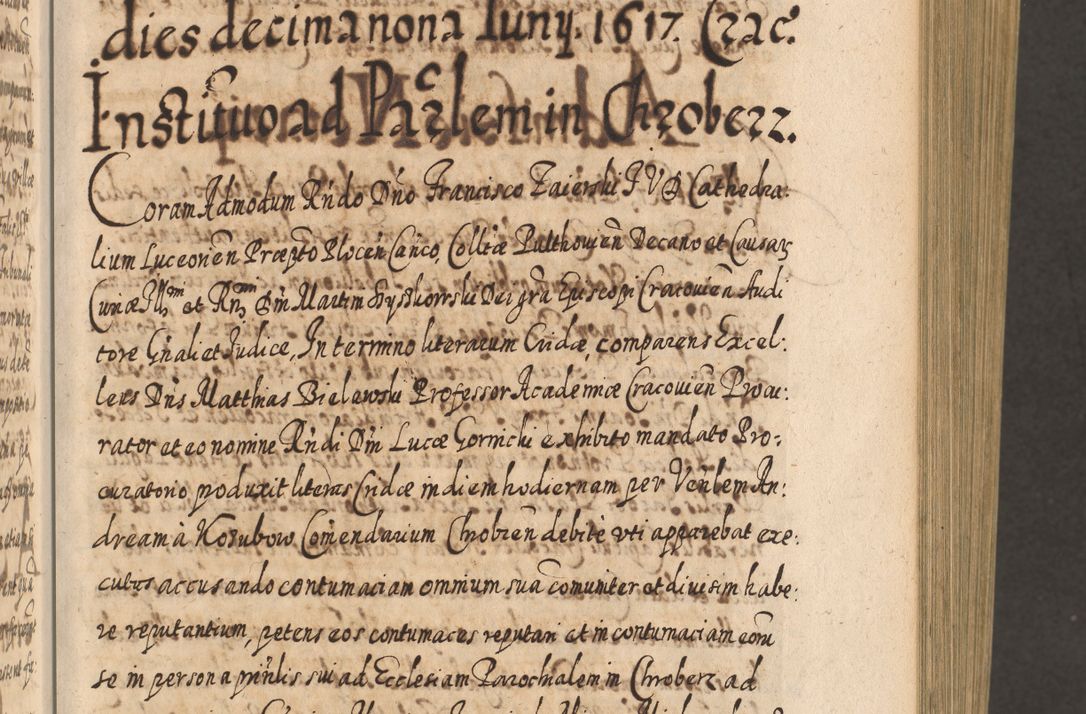 dies decimanona Iuny. 1617. Crac.
Institutio ad Parlem in Chroberz.
Coram Admodum Rndo Dno Francisco Zaierski I V D Cathedra:
lium Luceorien Præpto Plocen Canco, Collæ Pulthouien Decano et Causar
Curiæ Illm et Rm Dm Martini Szyszkowski Dei gra Episcopi Cracouien Audi
tore Gnali et Iudice, In termino literarum Cridæ, comparens Excel:
lens Dns Matthias Bielawski Professor Academiæ Cracouien Procu:
rator et eo nomine Rndi Dni Lucæ Gornicki exhibito mandato Pro:
curatorio, poduxit literas Cridæ in diem hodiernam per Venlem An:
dream à Kosubow Comendarium Chrobren debitè vti apparebat exe:
cutas accusando contumaciam omnium sua comuniter et diuisim habe:
re reputantium, petens eos contumaces reputari et in contumaciam eoru
se in persona prinlis sui ad Ecclesiam Parochialem in Chroberz ad